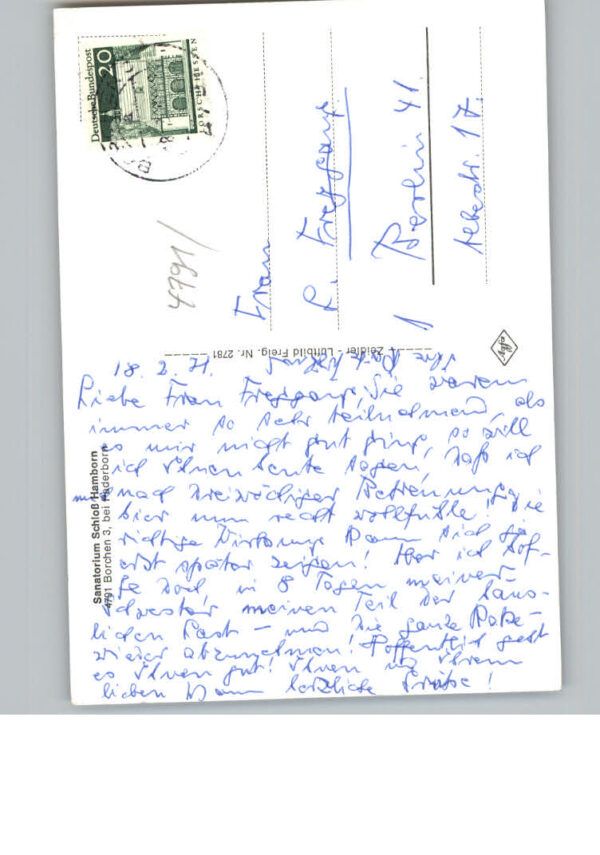 Deutsche Bundespost
20
LORSCH/HESSEN
4791/
Frau
Berlin 41
17.
Zeidler - Luftbild Freig. Nr. 2781
Sanatorium Schloß Hamborn
4791 Borchen 3, bei Paderborn
18. 2. 71.
Liebe Frau Sie waren
immer so sehr teilnehmend, als
es mir nicht gut ging, so will
ich Ihnen heute sagen, daß ich
mich nach dreiwöchiger Betreuung
hier nun recht wohlfühle! Die
richtige Wirkung kann sich ja
erst später zeigen! Aber ich hof-
fe doch, in 8 Tagen meiner
Schwester meinen Teil der häus-
lichen Last – und die ganze
wieder abzunehmen! Hoffentlich geht
es Ihnen gut! Ihnen und Ihrem
lieben Mann herzliche Grüße!
Ihre